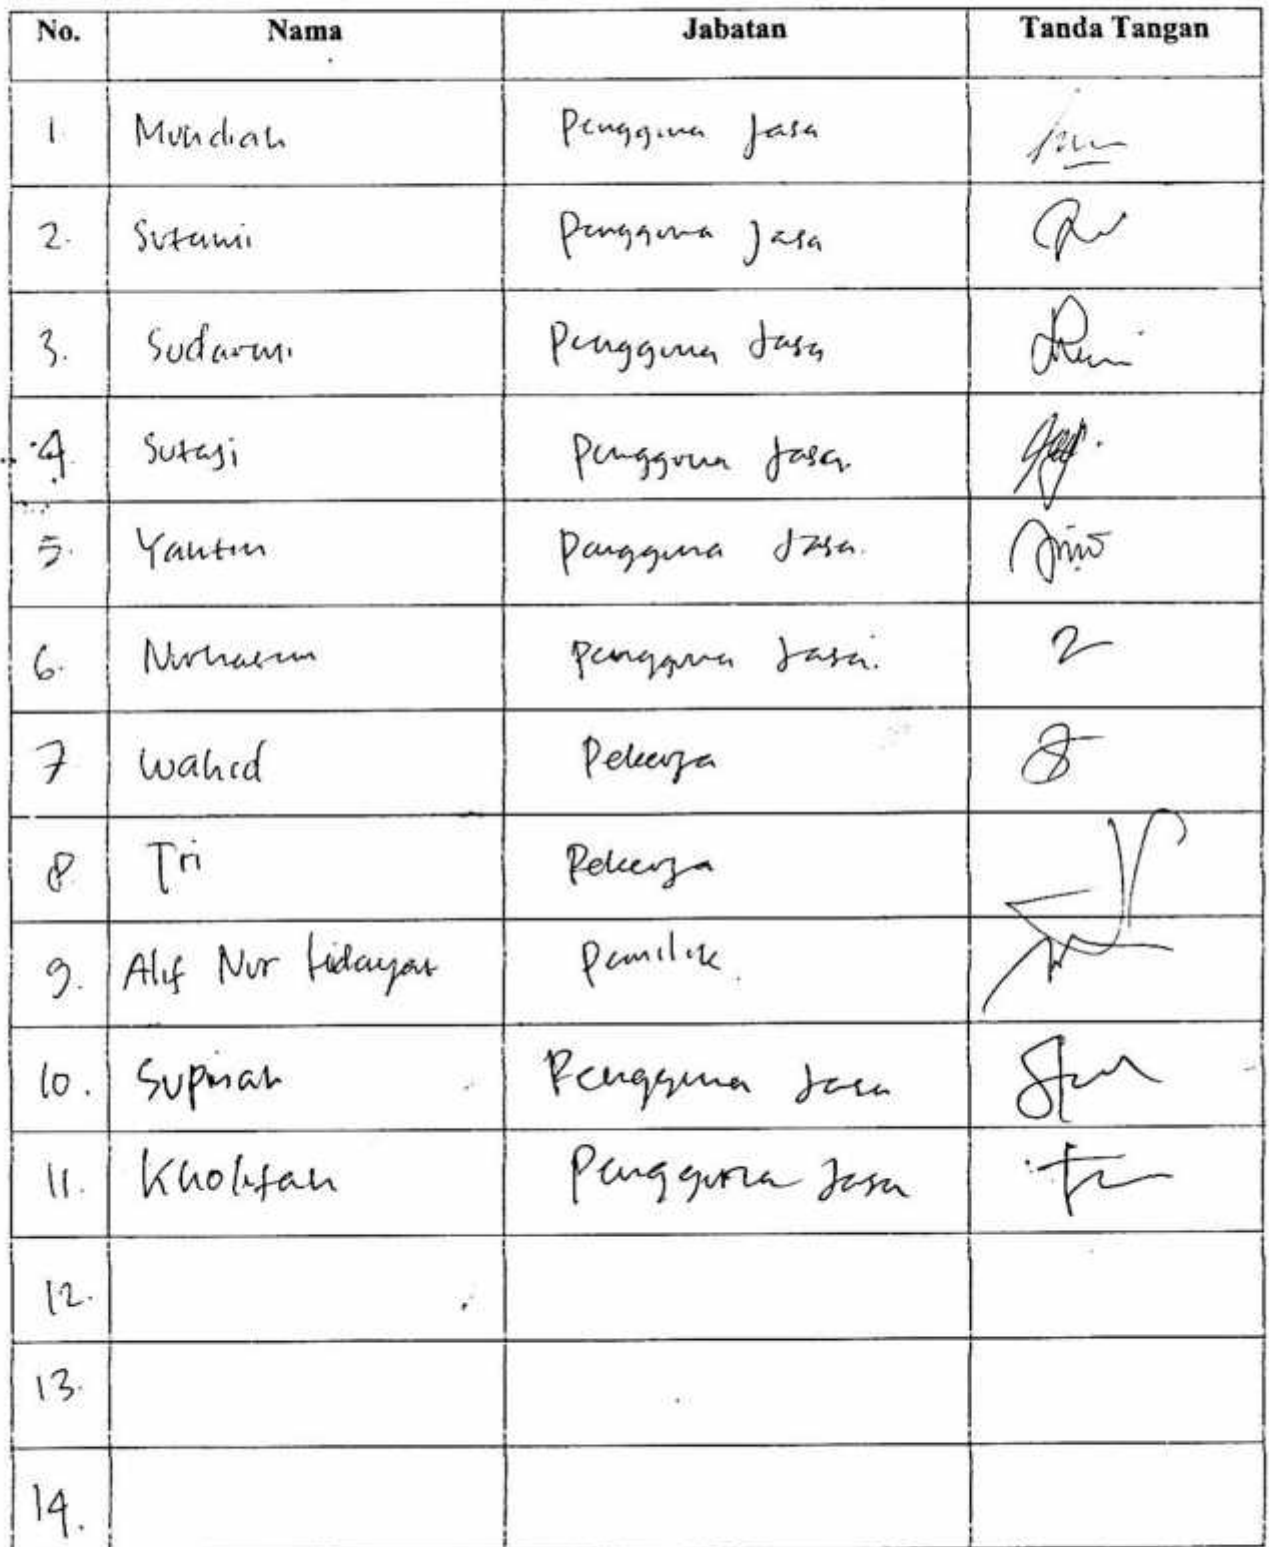 No. Nama Jabatan Tanda Tangan
1. Mundiah Pengguna Jasa
2. Sutami Pengguna Jasa
3. Sudarmi Pengguna Jasa
4. Sutaji Pengguna Jasa.
5. Yantin Pengguna Jasa.
6. Pengguna Jasa.
7 Wahid Pekerja
8. Tri Pekerja
9. Alif Nur Hidayat Pemilik.
10. Pengguna Jasa
11. Kholifah Pengguna Jasa
12.
13.
14.